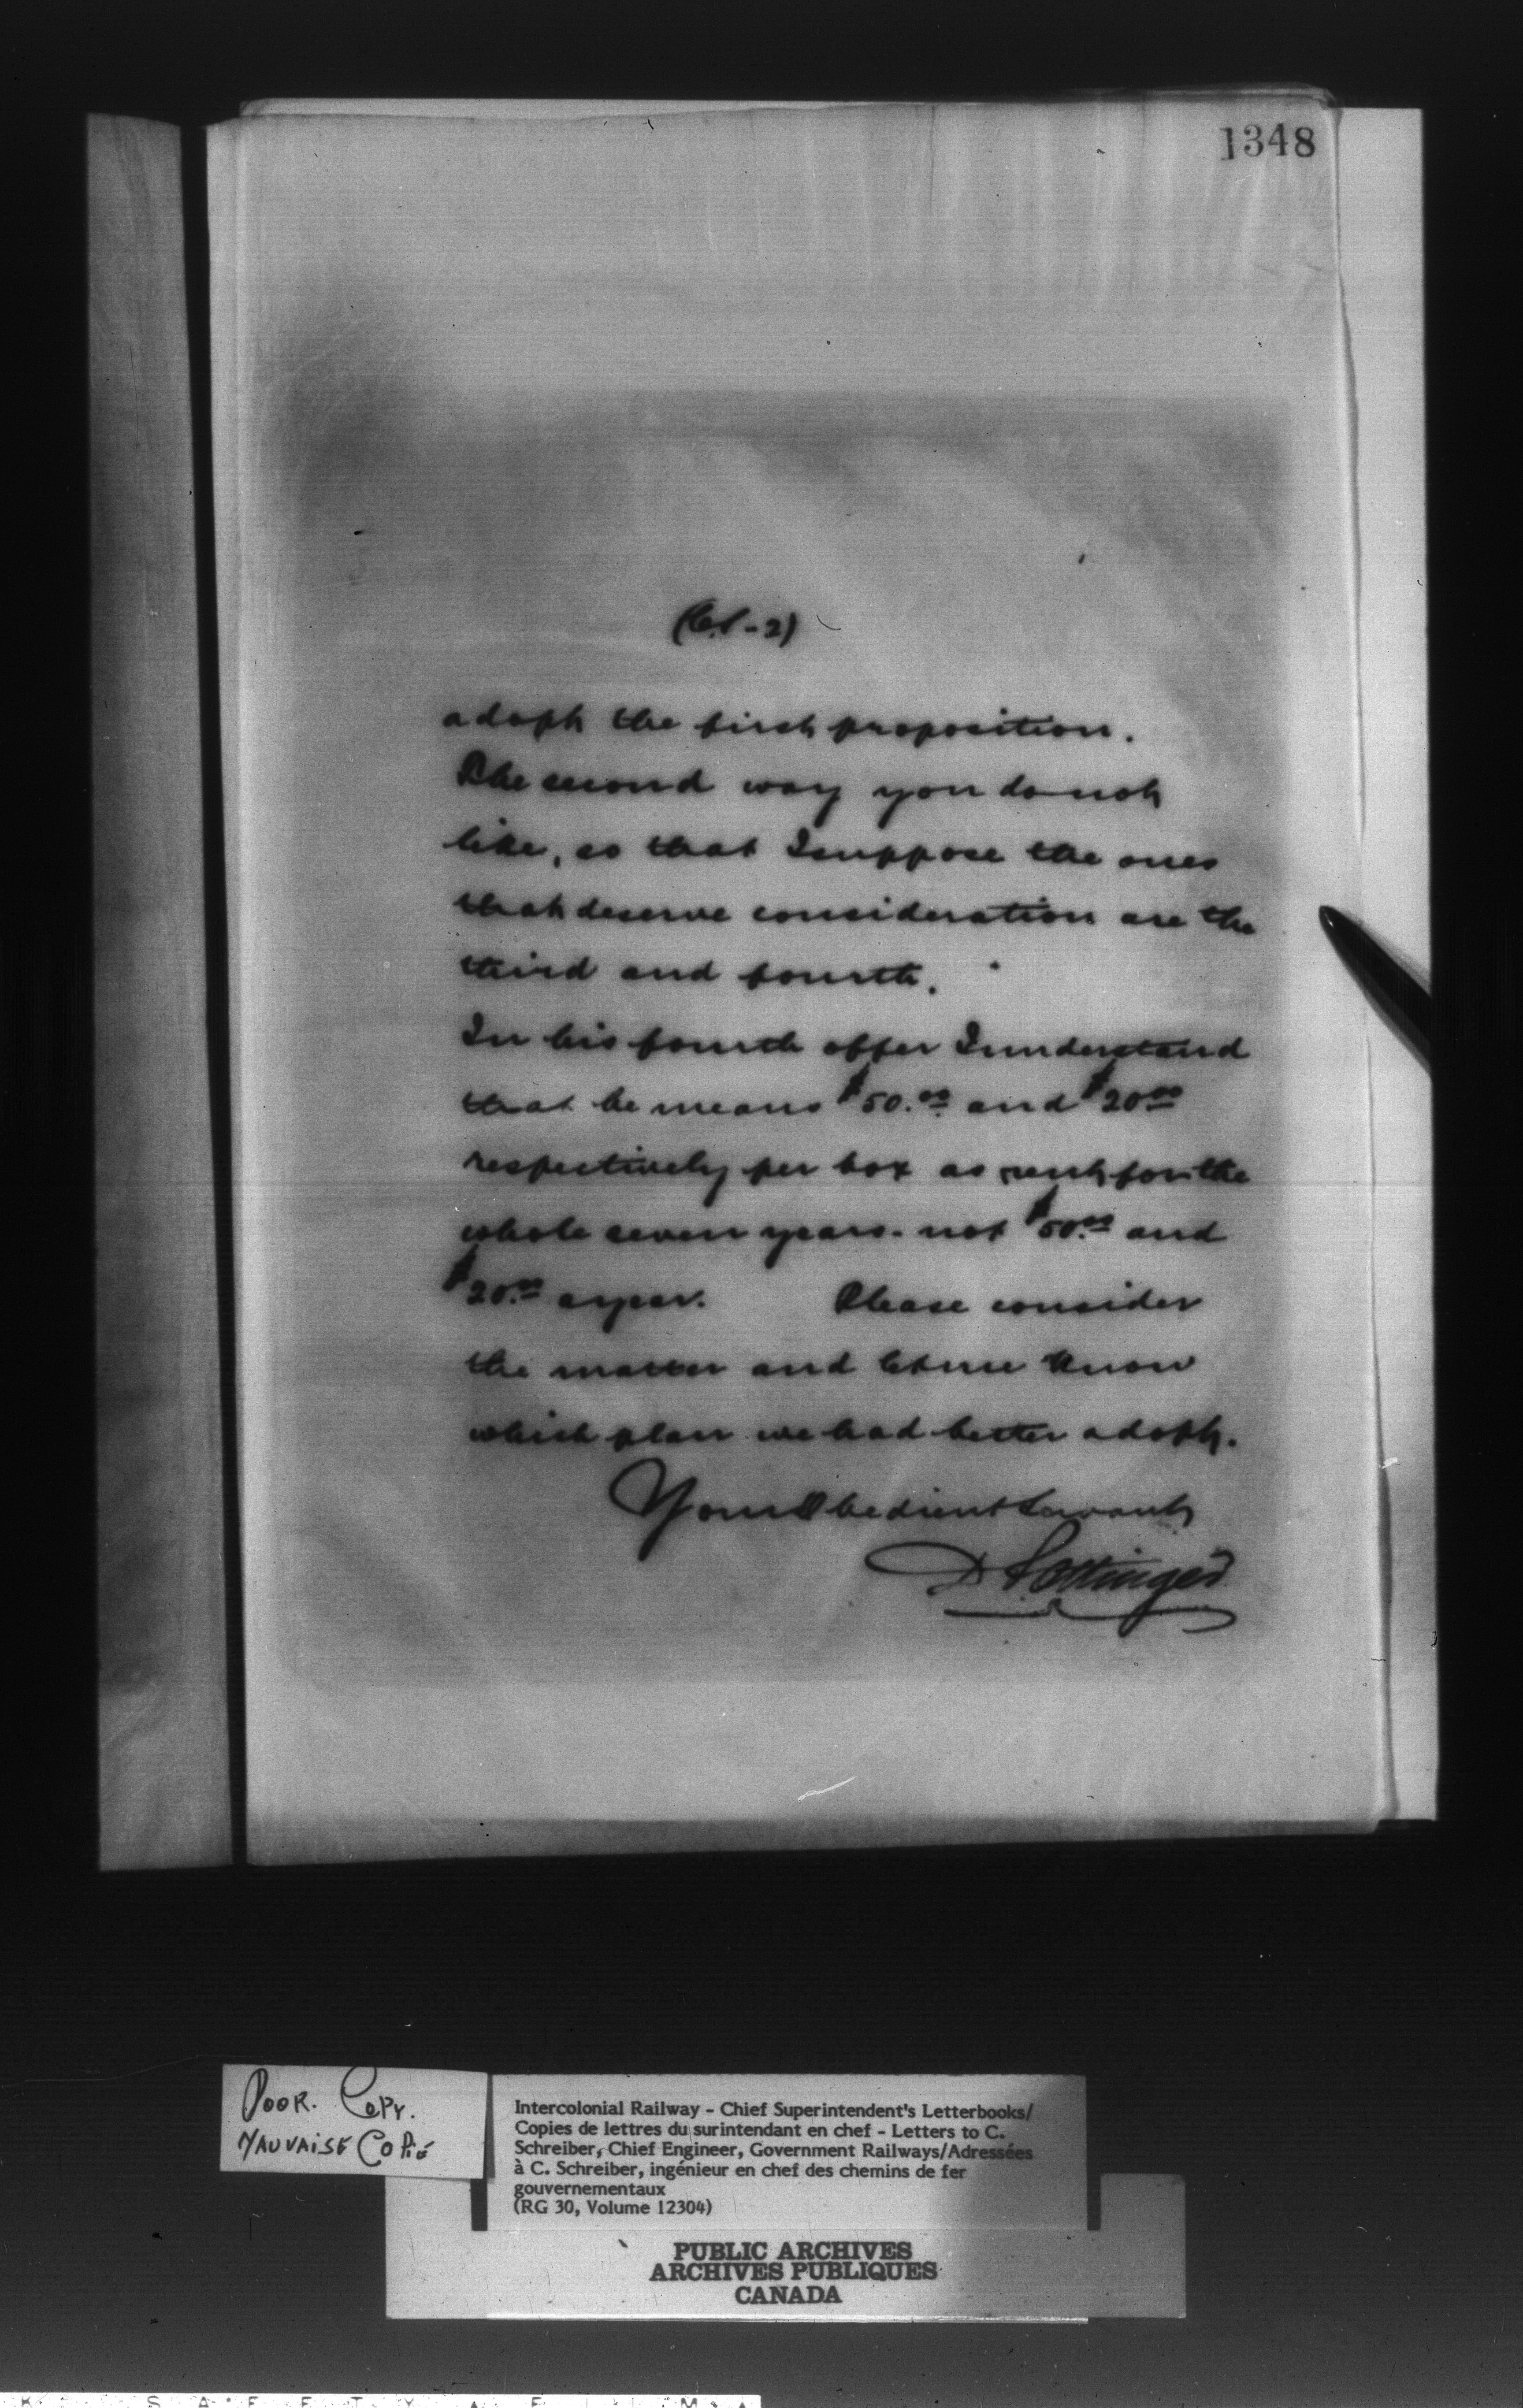 1348
(C.S-2)
adopt the first proposition.
The second way you do not
like, so that I suppose the ones
that deserve consideration are the
third and fourth.
In his fourth offer I understand
that he means $50.00 and $20.00
respectively per box as rent for the
whole seven years - not $50.00 and
$20.00 a year. Please consider
the matter and let me know
which plan we had better adopt.
Your Obedient Servant
D Pottinger
POOR. COPY.
MAUVAISE COPIE
Intercolonial Railway - Chief Superintendent's Letterbooks/
Copies de lettres du surintendant en chef - Letters to C.
Schreiber, Chief Engineer, Government Railways/Adressées
à C. Schreiber, ingénieur en chef des chemins de fer
gouvernementaux
(RG 30, Volume 12304)
PUBLIC ARCHIVES
ARCHIVES PUBLIQUES
CANADA